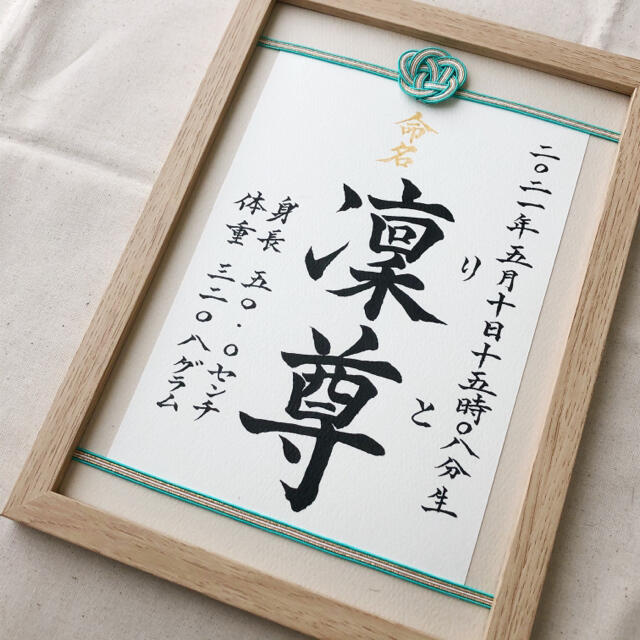 二〇二一年五月十日十五時〇八分生
りと
命名
凜尊
身長 五〇.〇センチ
体重 三二〇八グラム